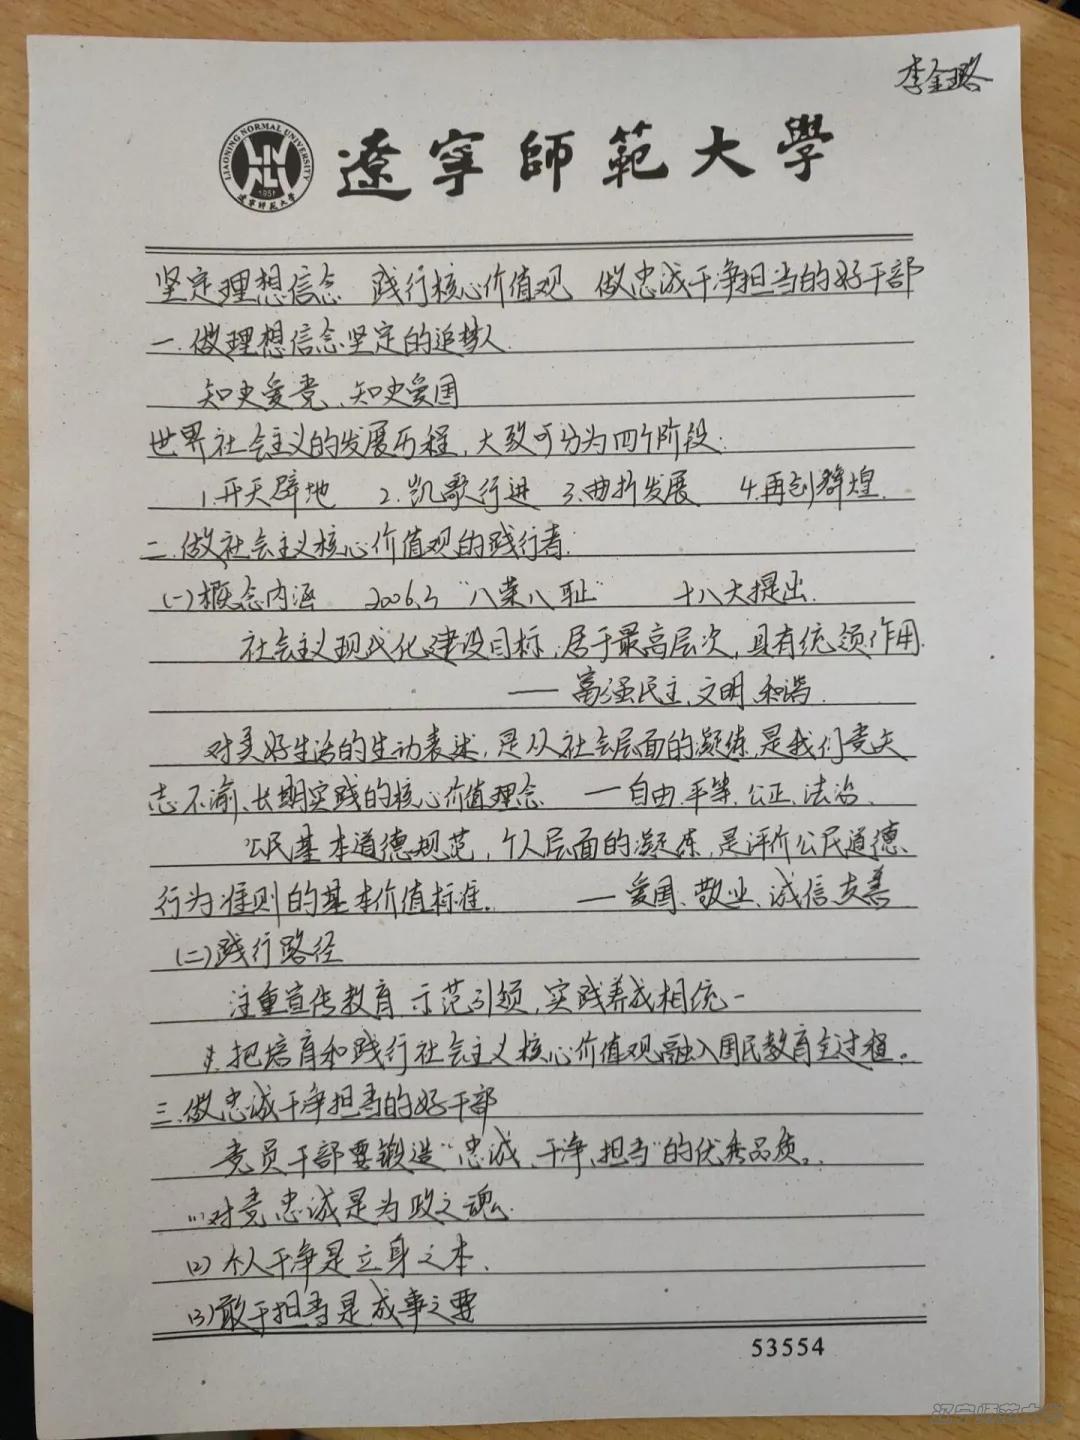 李金璐
LIAONING NORMAL UNIVERSITY
1951
遼寧師範大學
遼寧師範大學
坚定理想信念 践行核心价值观 做忠诚干净担当的好干部
一.做理想信念坚定的追梦人.
知史爱党、知史爱国
世界社会主义的发展历程,大致可分为四个阶段:
1.开天辟地 2.凯歌行进 3.曲折发展 4.再创辉煌.
二.做社会主义核心价值观的践行者.
(一)概念内涵 2006.3 "八荣八耻" 十八大提出.
社会主义现代化建设目标,居于最高层次,具有统领作用.
—— 富强民主、文明、和谐.
对美好生活的生动表述,是从社会层面的凝练,是我们党矢
志不渝、长期实践的核心价值理念 — 自由、平等、公正、法治、
公民基本道德规范,个人层面的凝练,是评价公民道德、
行为准则的基本价值标准. — 爱国、敬业、诚信、友善
(二)践行路径
注重宣传教育、示范引领,实践养成相统一
把培育和践行社会主义核心价值观融入国民教育全过程。
三.做忠诚干净担当的好干部
党员干部要锻造"忠诚、干净、担当"的优秀品质.
(1)对党忠诚是为政之魂.
(2)个人干净是立身之本.
(3)敢于担当是成事之要
53554
辽宁师范大学